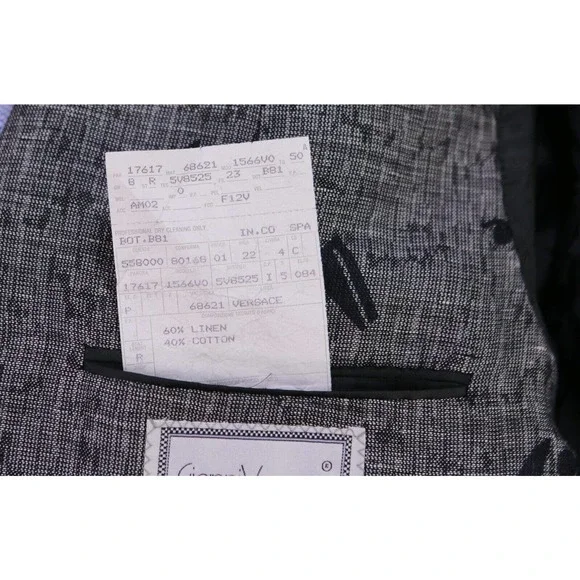 17617 68621 1566V0 50
8 R 5V8525 23 BB1
0
AM02 F12V
PROFESSIONAL DRY CLEANING ONLY
BOT.BB1 IN.CO SPA
558000 80168 01 22 4 C
17617 1566V0 5V8525 I 5 084
P 68621 VERSACE
60% LINEN
R 40% COTTON
®